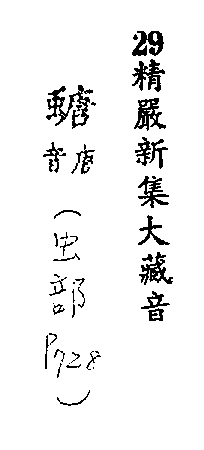 29精嚴新集大藏音
螗音唐(虫部P728)